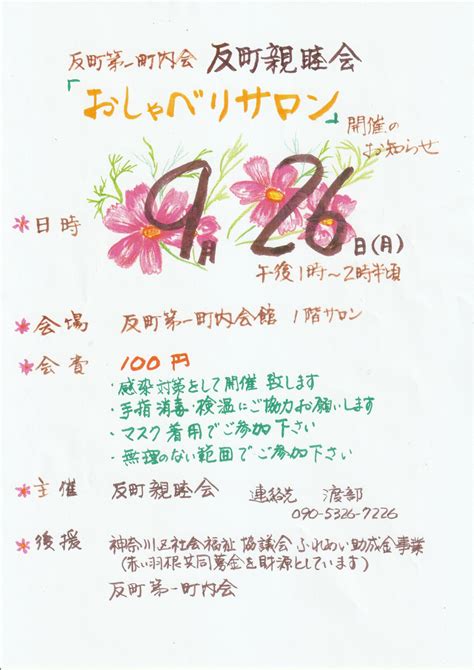 反町第一町内会 反町親睦会
「おしゃべりサロン」開催の
お知らせ
日時 9月26日(月)
午後1時〜2時半頃
会場 反町第一町内会館 1階サロン
会費 100円
・感染対策をして開催致します
・手指消毒・検温にご協力お願いします
・マスク着用でご参加下さい
・無理のない範囲でご参加下さい
主催 反町親睦会 連絡先 渡部
090-5326-7226
後援 神奈川区社会福祉協議会ふれあい助成金事業
(赤い羽根共同募金を財源としています)
反町第一町内会